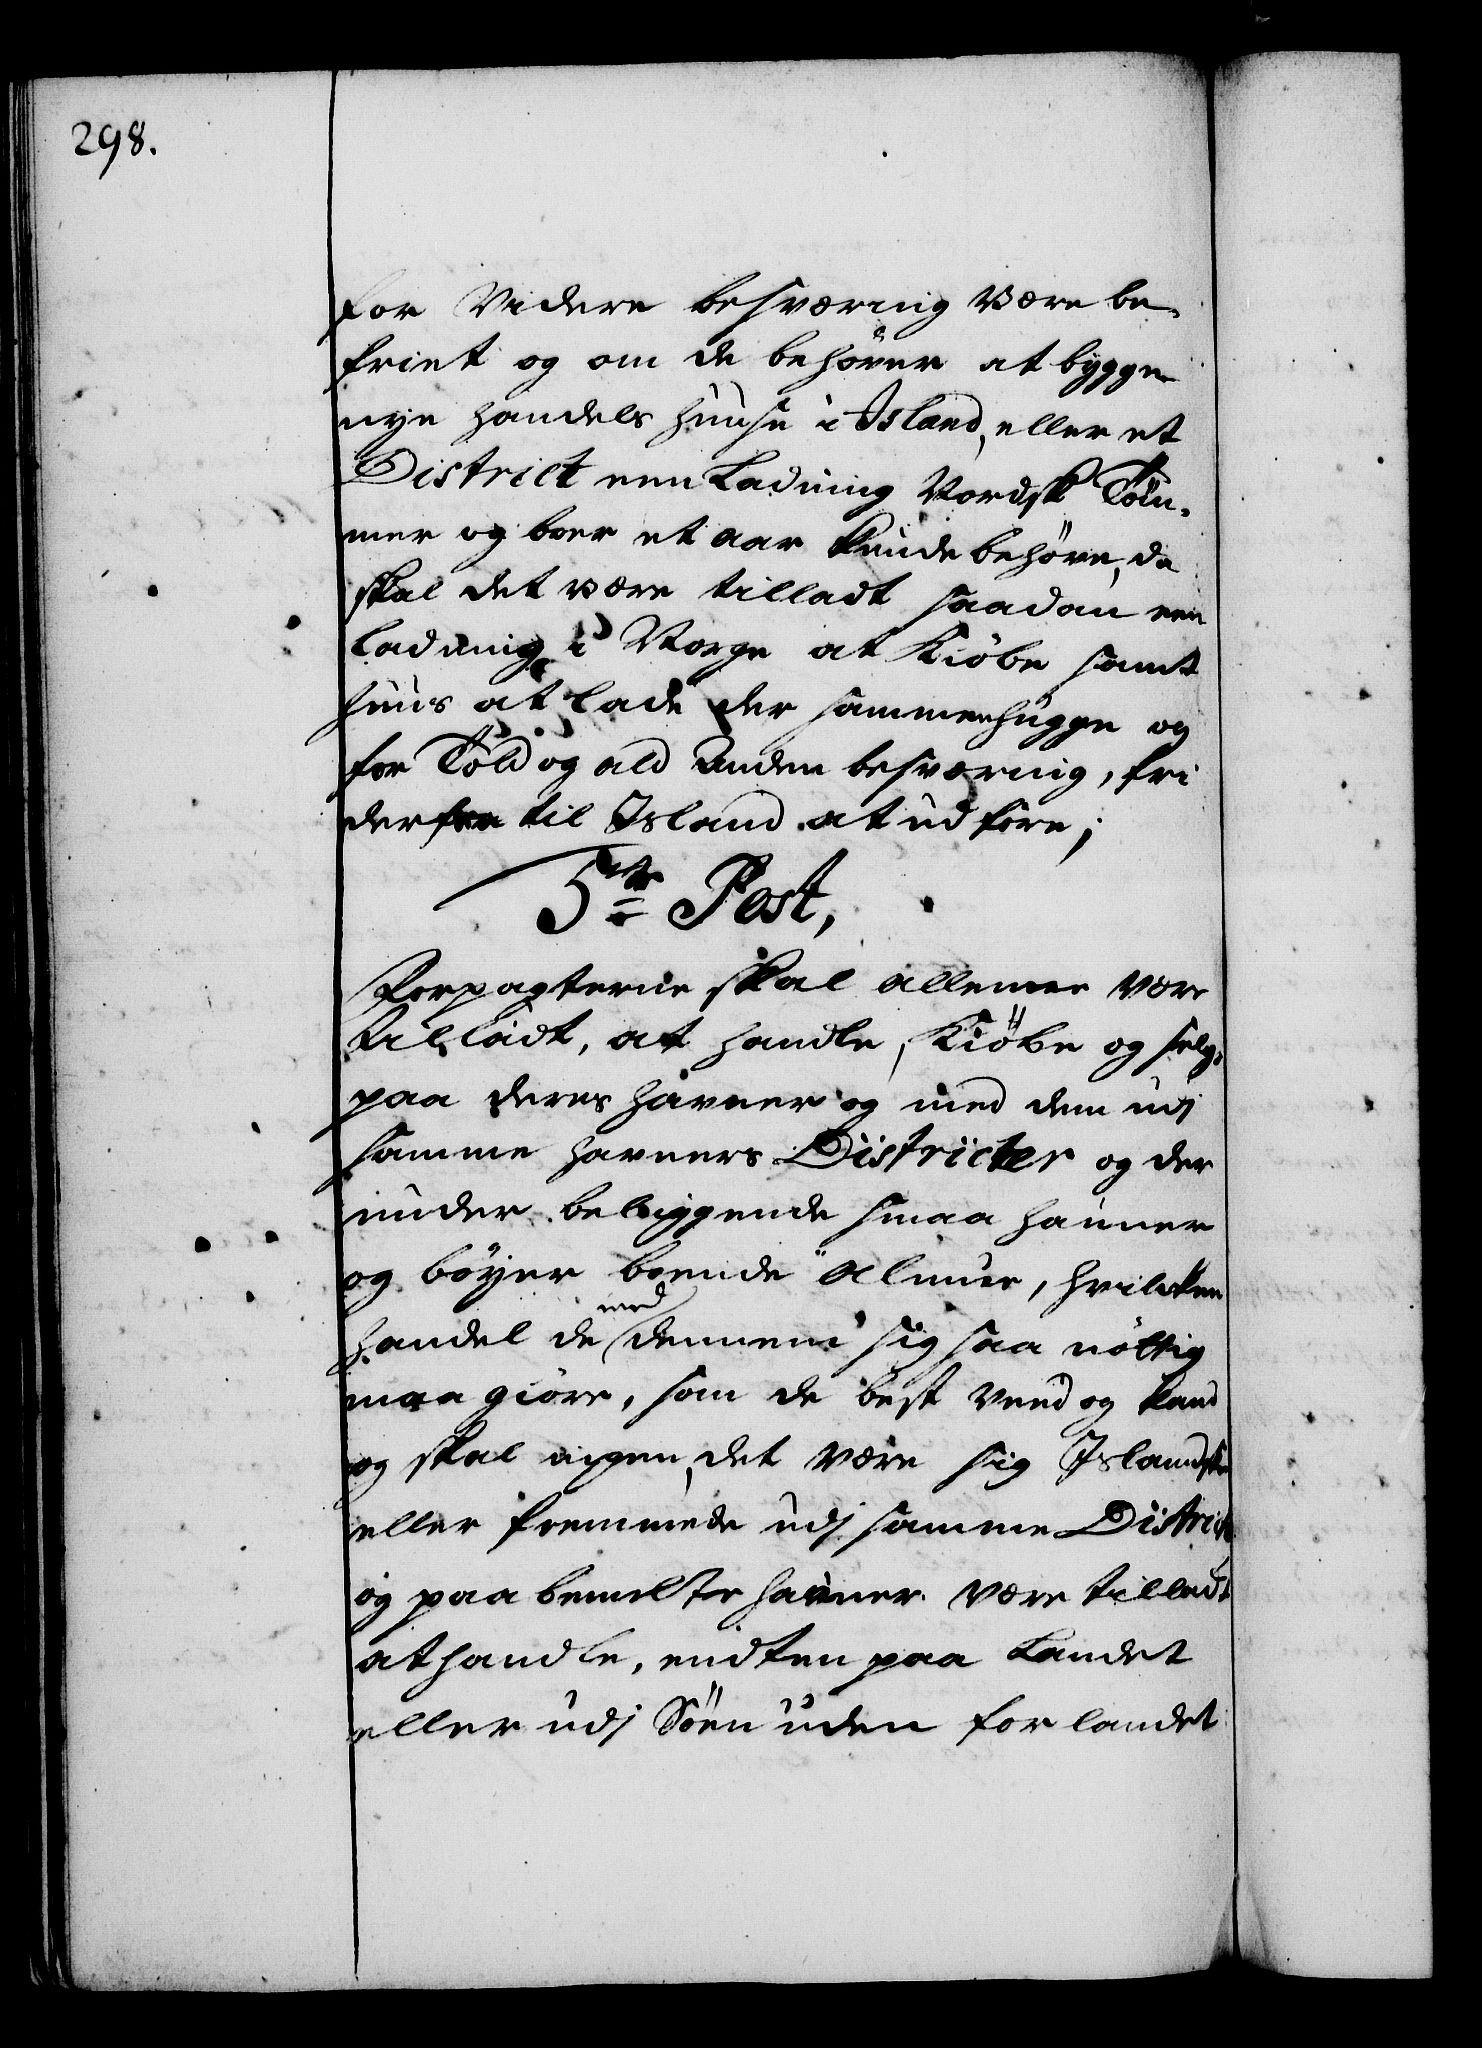 298.
for Videre besværing være be-
friet og om de behöver at bygge
nye handels huuse i Island, eller et
District een Ladning Nordsk Töm-
mer og boer et aar kunde behöve, da
skal det være tilladt saadan een
ladning i Norge at Kiöbe samt
huus at lade der sammenhugge og
for Told og ald Anden besværing, fri
derfra til Island at udföre;
5te Post,
Forpagterne skal allene være
tilladt, at handle, Kiöbe og selge
paa deres havner og med dem udj
samme havners Districter og der
under beliggende smaa hauner
og böyer boende Almue, hvilcken
handel de med dennem sig saa nöttig
maa giöre, som de best veed og kand
og skal ingen, det være sig Islandske
eller fremmede udj samme District
og paa bemelte hauner være tilladt
at handle, endten paa Landet
eller udj Söen uden for landet